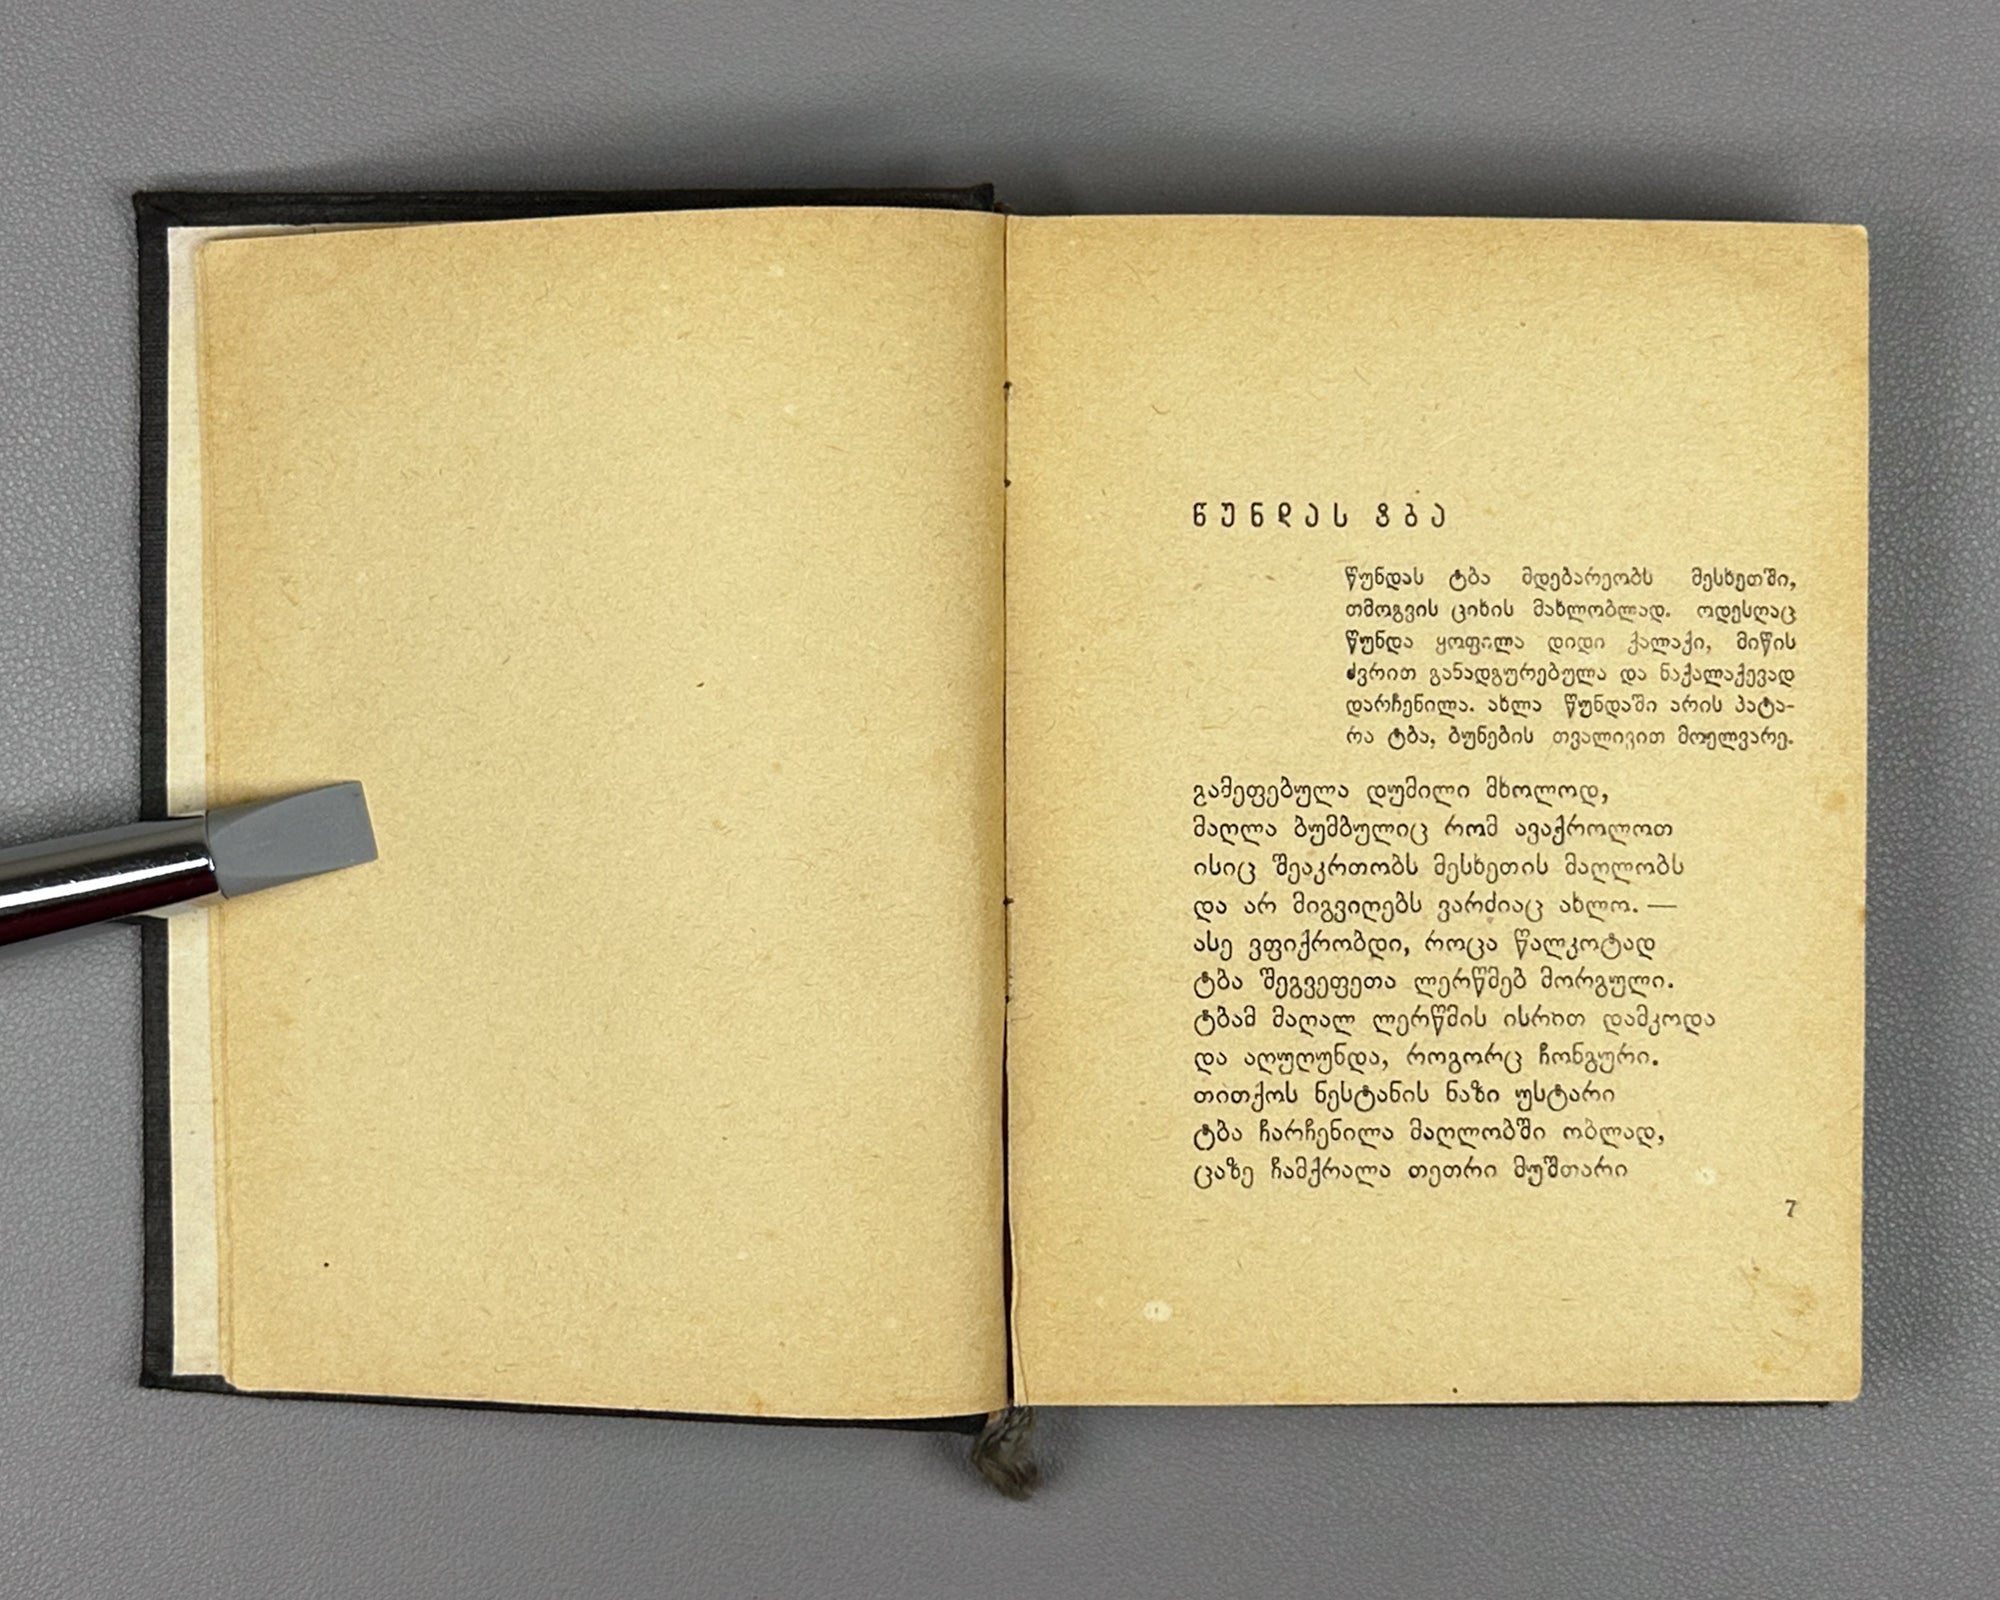 წუნდას ტბა
წუნდას ტბა მდებარეობს მესხეთში,
თმოგვის ციხის მახლობლად. ოდესღაც
წუნდა ყოფილა დიდი ქალაქი, მიწის
ძვრით განადგურებულა და ნაქალაქევად
დარჩენილა. ახლა წუნდაში არის პატა-
რა ტბა, ბუნების თვალივით მოელვარე.
გამეფებულა დუმილი მხოლოდ,
მაღლა ბუმბულიც რომ ავაქროლოთ
ისიც შეაკრთობს მესხეთის მაღლობს
და არ მიგვიღებს ვარძიაც ახლო. —
ასე ვფიქრობდი, როცა წალკოტად
ტბა შეგვეფეთა ლერწმებ მორგული.
ტბამ მაღალ ლერწმის ისრით დამკოდა
და აღუღუნდა, როგორც ჩონგური.
თითქოს ნესტანის ნაზი უსტარი
ტბა ჩარჩენილა მაღლობში ობლად,
ცაზე ჩამქრალა თეთრი მუშთარი
7